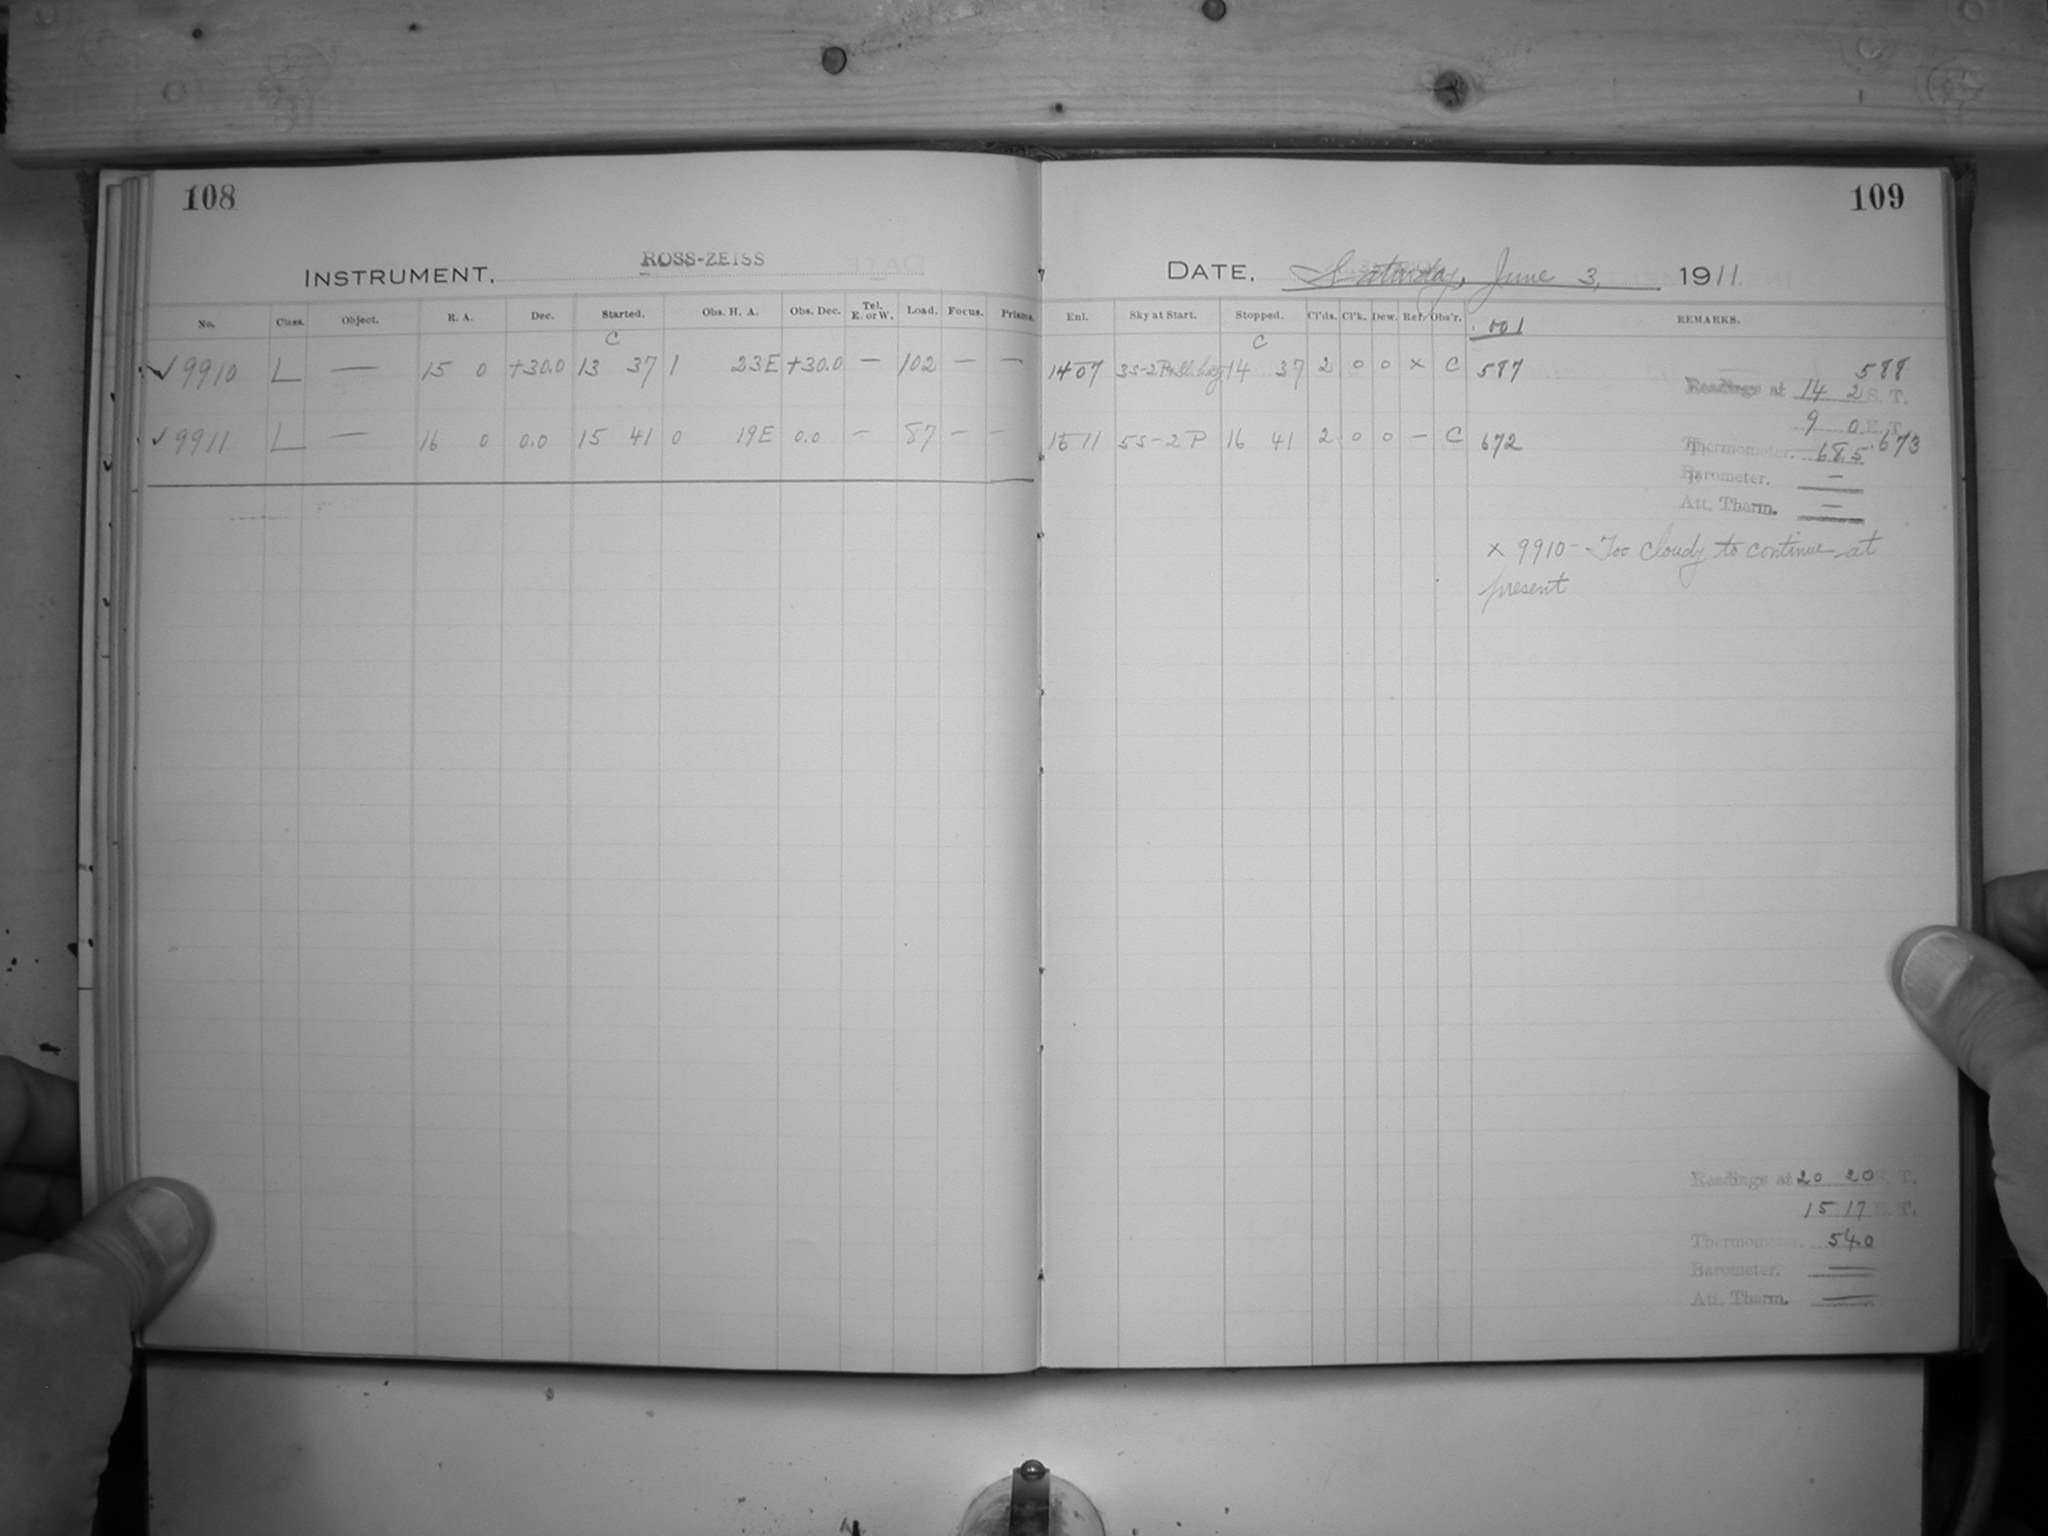 108
INSTRUMENT. ROSS-ZEISS
No. Class. Object. R. A. Dec. Started. Obs. H. A. Obs. Dec. Tel. E. or W. Load. Focus. Prisms.
C
✓ 9910 L — 15 0 +30.0 13 37 1 23E +30.0 — 102 — —
✓ 9911 L — 16 0 0.0 15 41 0 19E 0.0 — 87 — —
109
DATE. Saturday, June 3, 1911.
Enl. Sky at Start. Stopped. Cl'ds. Cl'k. Dew. Ref. Obs'r. REMARKS.
.001
C
1407 3S-2P 14 37 2 0 0 x C 587 588
Readings at 14 2 S. T.
9 0 E. T.
1611 5S-2P 16 41 2 0 0 — C 672 .673
Thermometer. 68.5
Barometer. —
Att. Therm. —
x 9910 - Too cloudy to continue at
present
Readings at 20 20 S. T.
15 17 E. T.
Thermometer. 54.0
Barometer. —
Att. Therm. —